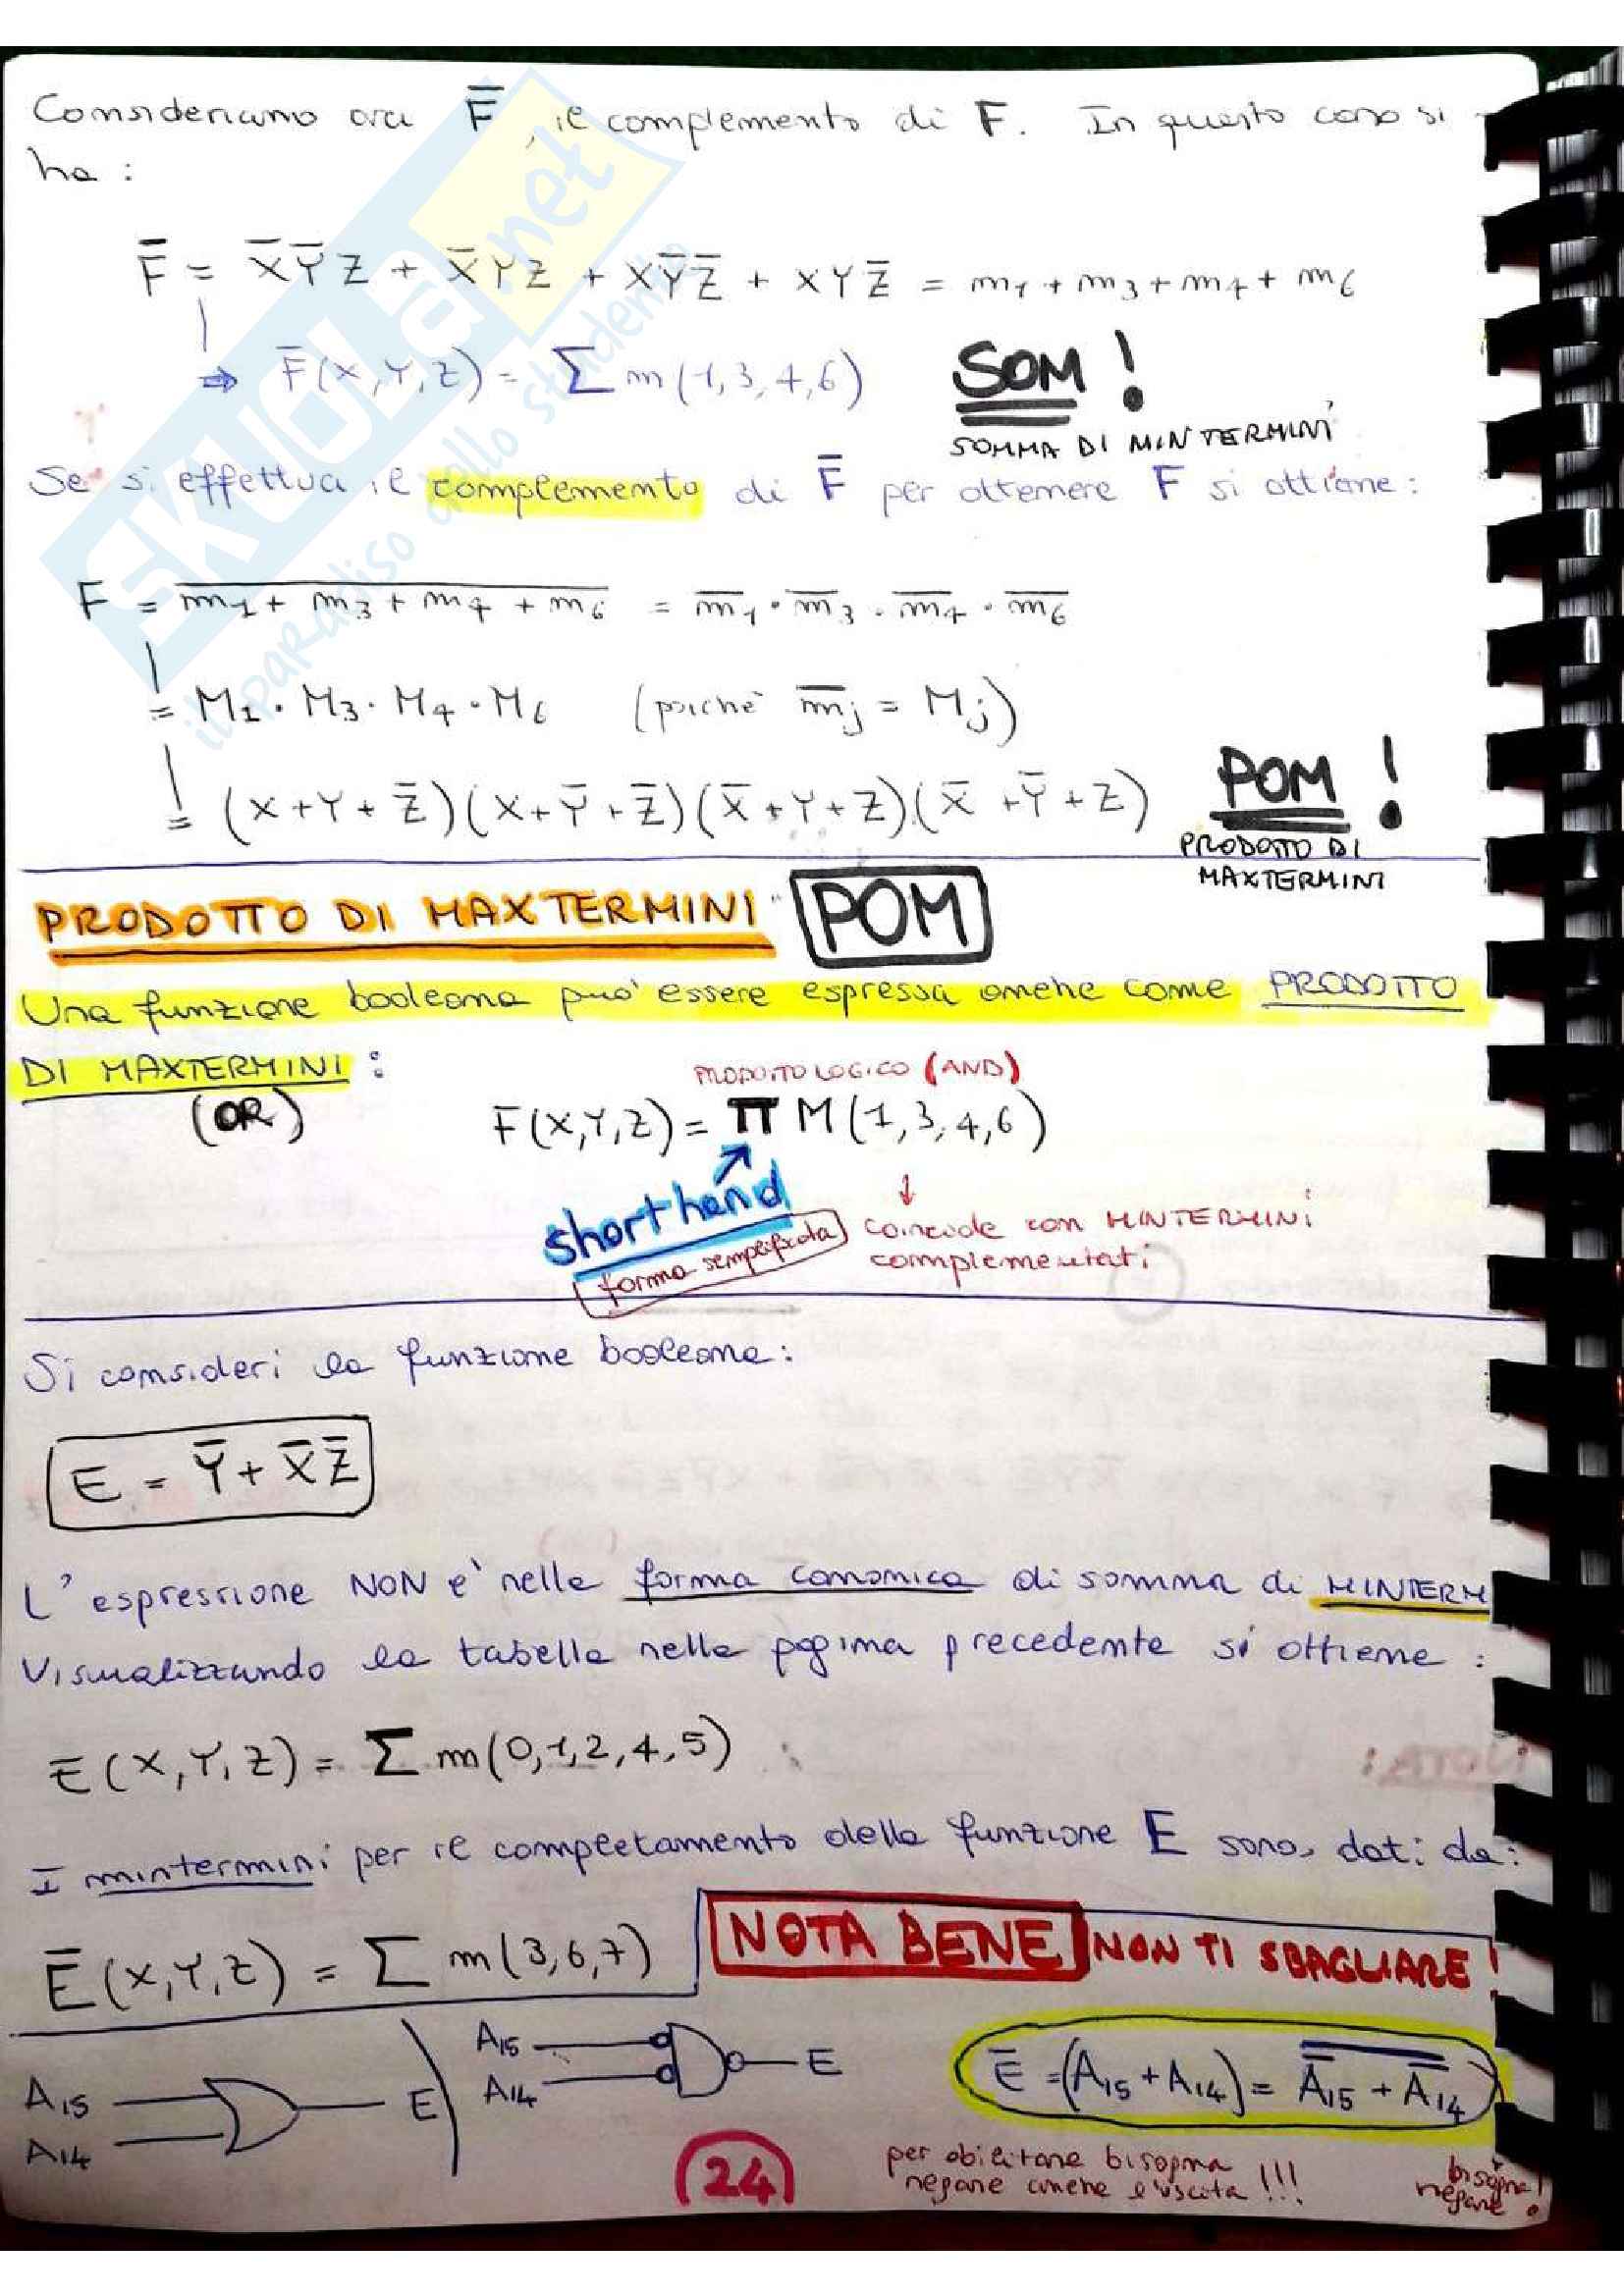 Consideriamo ora F̅, il complemento di F. In questo caso si
ha:
F̅ = X̅Y̅Z + X̅YZ + XY̅Z̅ + XYZ̅ = m1 + m3 + m4 + m6
⇒ F̅(X,Y,Z) = Σ m(1,3,4,6)
SOM!
SOMMA DI MINTERMINI
Se si effettua il complemento di F̅ per ottenere F si ottiene:
F = \overline{m1 + m3 + m4 + m6} = m̅1 · m̅3 · m̅4 · m̅6
= M1 · M3 · M4 · M6 (poichè m̅j = Mj)
= (X+Y+Z̅)(X+Y̅+Z̅)(X̅+Y+Z)(X̅+Y̅+Z)
POM!
PRODOTTO DI
MAXTERMINI
PRODOTTO DI MAXTERMINI POM
Una funzione booleana può essere espressa anche come PRODOTTO
DI MAXTERMINI:
(OR)
PRODOTTO LOGICO (AND)
F(X,Y,Z) = Π M(1,3,4,6)
shorthand
(forma semplificata)
coincide con MINTERMINI
complementati
Si consideri la funzione booleana:
E = Y̅ + X̅Z̅
L'espressione NON è nella forma canonica di somma di MINTERM
Visualizzando la tabella nella pagina precedente si ottiene:
E(X,Y,Z) = Σ m(0,1,2,4,5)
I mintermini per il completamento della funzione E sono dati da:
E̅(X,Y,Z) = Σ m(3,6,7)
NOTA BENE NON TI SBAGLIARE!
A15
A14
E
A15
A14
E
E̅ = (A15 + A14) = \overline{A̅15 + A̅14}
per abilitare bisogna
negare anche l'uscita !!!
bisogna
negare!
24
SKUOLA.net
il paradiso dello studente